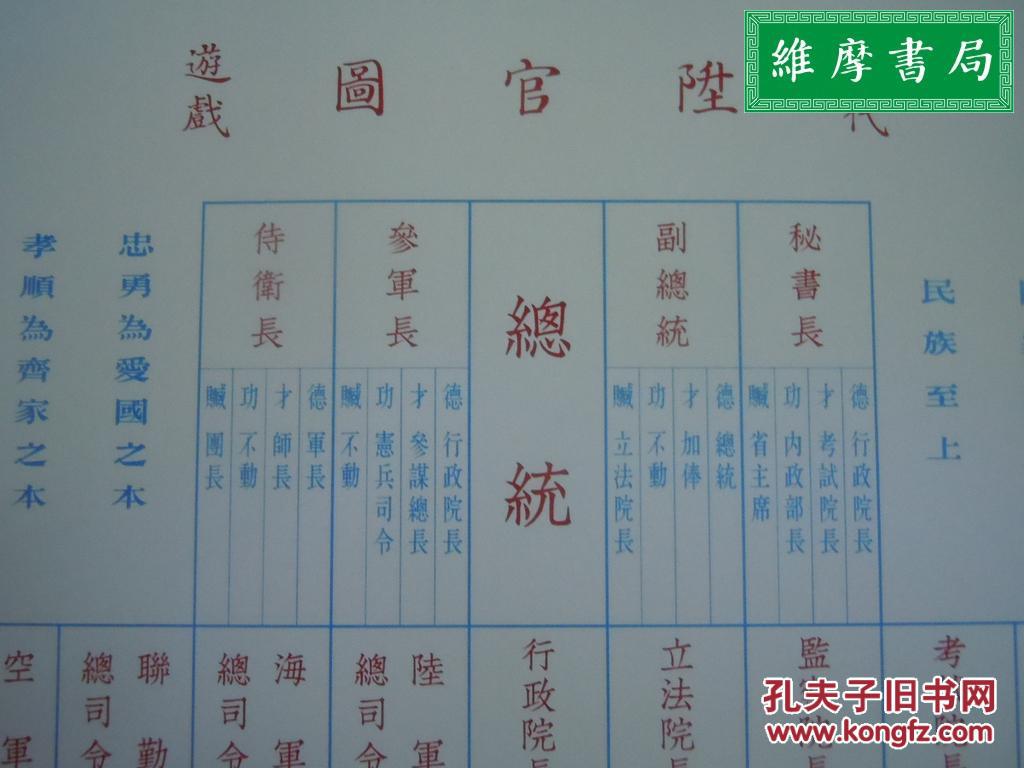 維摩書局
代
陞官圖
遊戲
民族至上
秘書長
德 行政院長
才 考試院長
功 內政部長
贓 省主席
副總統
德 總統
才 加俸
功 不動
贓 立法院長
總統
參軍長
德 行政院長
才 參謀總長
功 憲兵司令
贓 不動
侍衛長
德 軍長
才 師長
功 不動
贓 團長
忠勇為愛國之本
孝順為齊家之本
考
院長
監
院長
立法院長
行政院長
陸軍
總司令
海軍
總司令
聯勤
總司令
空軍
孔夫子旧书网
www.kongfz.com